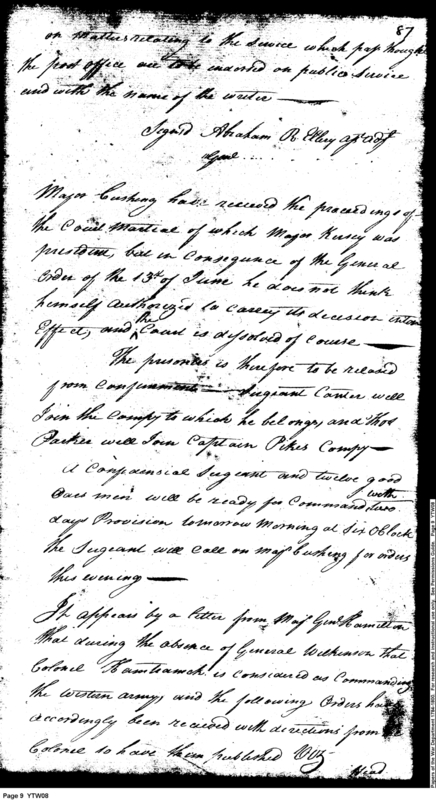 87
on matters relating to the service which pass through
the post office are to be indorsed on public service
and with the name of the writer —
Signed Abraham R Ellery
Genl
Major Cushing has received the proceedings of
the Court Martial of which Major Kersey was
president, but in consequence of the General
Order of the 13th of June he does not think
himself authorized to carry its decision into
Effect, and the Court is dissolved of course —
The prisoner is therefore to be released
from confinement — Sergeant Carter will
Join the Compy to which he belongs, and Thos
Parker will Join Captain Pikes Compy —
A Confidencial Sergeant and twelve good
Oars men will be ready for Command with two
days Provision tomorrow Morning at Six OClock
the Sergeant will call on majr Cushing for orders
this evening —
It appears by a letter from Majr Genl Hamilton
that during the absence of General Wilkinson that
Colonel Hamtramck is considered as Commanding
the western army, and the following Orders have
accordingly been received with directions from the
Colonel to have them published Viz
Head
Page 9 YTW08